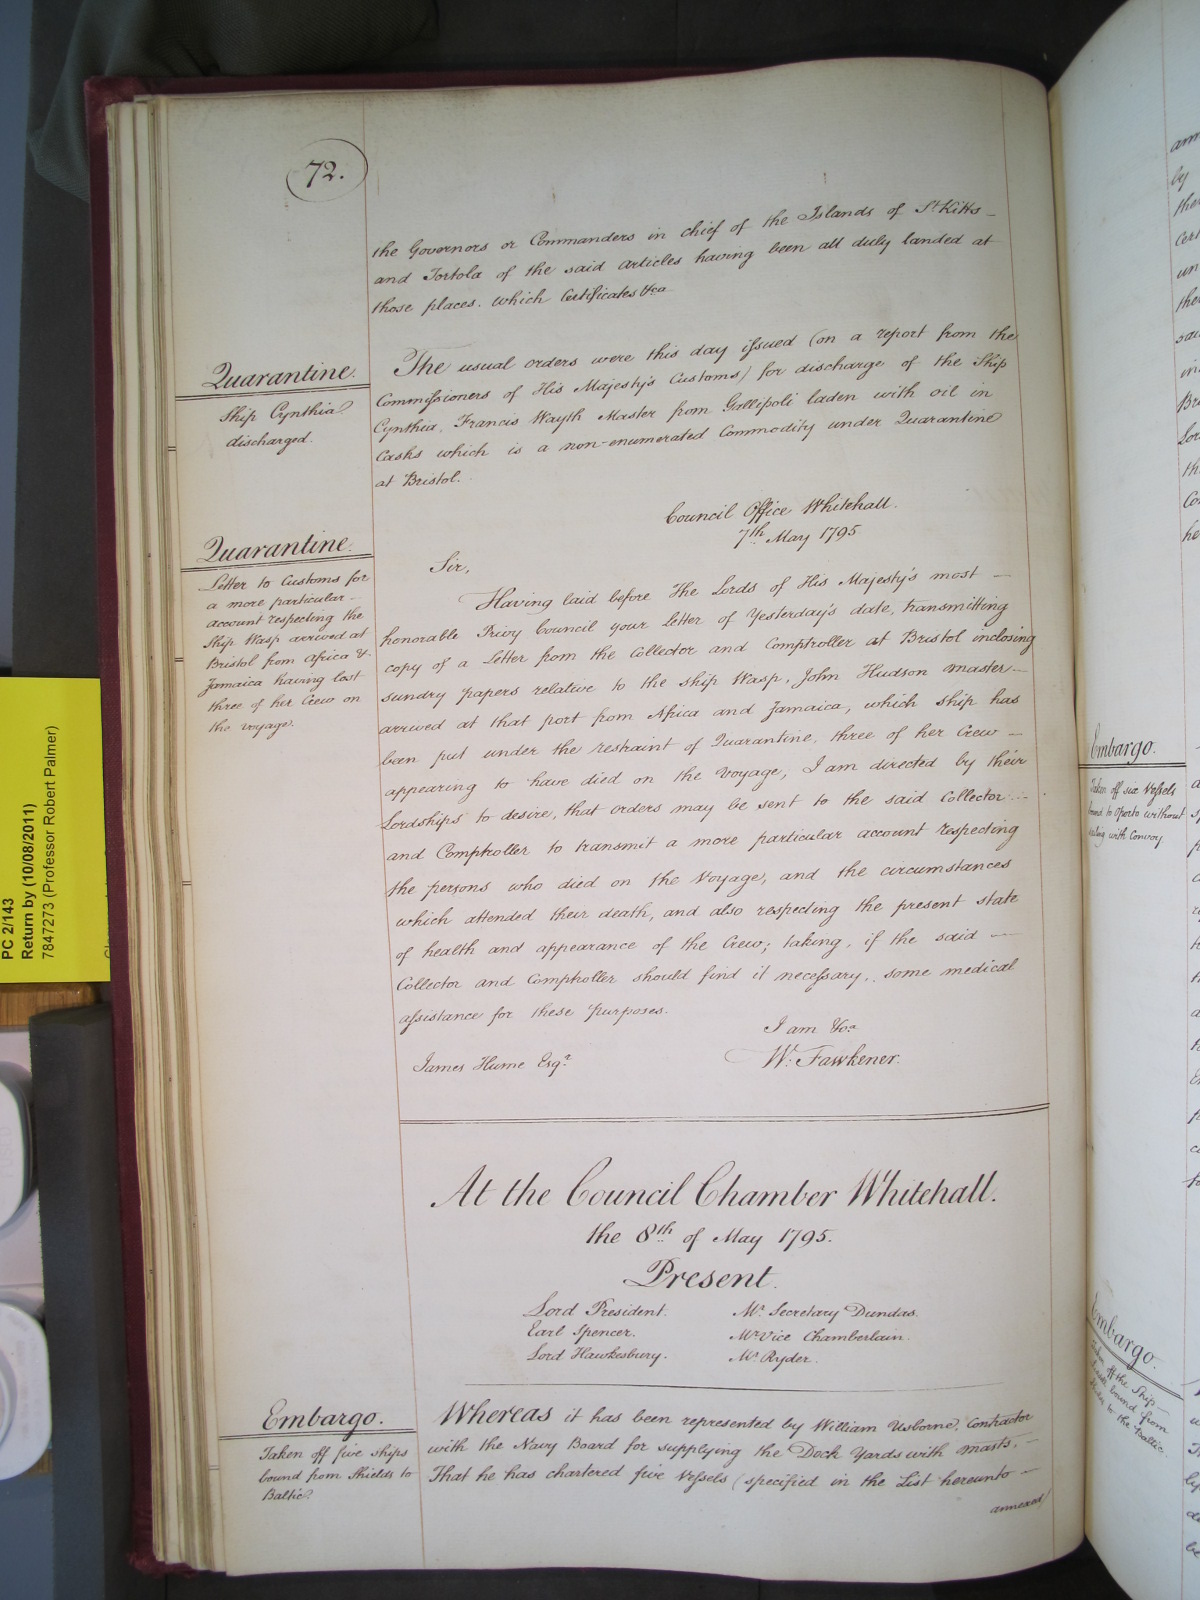 72.
the Governors or Commanders in chief of the Islands of St Kitts
and Tortola of the said articles having been all duly landed at
those places. which Certificates &ca
Quarantine.
Ship Cynthia
discharged.
The usual orders were this day issued (on a report from the
Commissioners of His Majesty's Customs) for discharge of the Ship
Cynthia, Francis Wayth Master from Gallipoli laden with oil in
Casks which is a non-enumerated Commodity under Quarantine
at Bristol.
Council Office Whitehall.
7th May 1795
Quarantine.
Letter to Customs for
a more particular
account respecting the
Ship Wasp arrived at
Bristol from Africa &
Jamaica having lost
three of her Crew on
the voyage.
Sir,
Having laid before The Lords of His Majesty's most
honorable Privy Council your Letter of Yesterday's date, transmitting
copy of a Letter from the Collector and Comptroller at Bristol inclosing
sundry papers relative to the ship Wasp, John Hudson master
arrived at that port from Africa and Jamaica, which ship has
been put under the restraint of Quarantine, three of her Crew
appearing to have died on the Voyage, I am directed by their
Lordships to desire, that orders may be sent to the said Collector
and Comptroller to transmit a more particular account respecting
the persons who died on the Voyage, and the circumstances
which attended their death, and also respecting the present state
of health and appearance of the Crew; taking, if the said
Collector and Comptroller should find it necessary, some medical
assistance for these purposes.
I am &ca
James Hume Esqr.
W: Fawkener.
At the Council Chamber Whitehall.
the 8th of May 1795.
Present.
Lord President. Mr. Secretary Dundas.
Earl Spencer. Mr Vice Chamberlain.
Lord Hawkesbury. Mr Ryder.
Embargo.
Taken off five ships
bound from Shields to
Baltic.
Whereas it has been represented by William Usborne, Contractor
with the Navy Board for supplying the Dock Yards with masts.
That he has chartered five Vessels (specified in the List hereunto
annexed)
Embargo.
Taken off six Vessels
bound to Oporto without
sailing with Convoy.
Embargo.
Taken off the Ship
bound from
to the Baltic
PC 2/143
Return by (10/08/2011)
7847273 (Professor Robert Palmer)